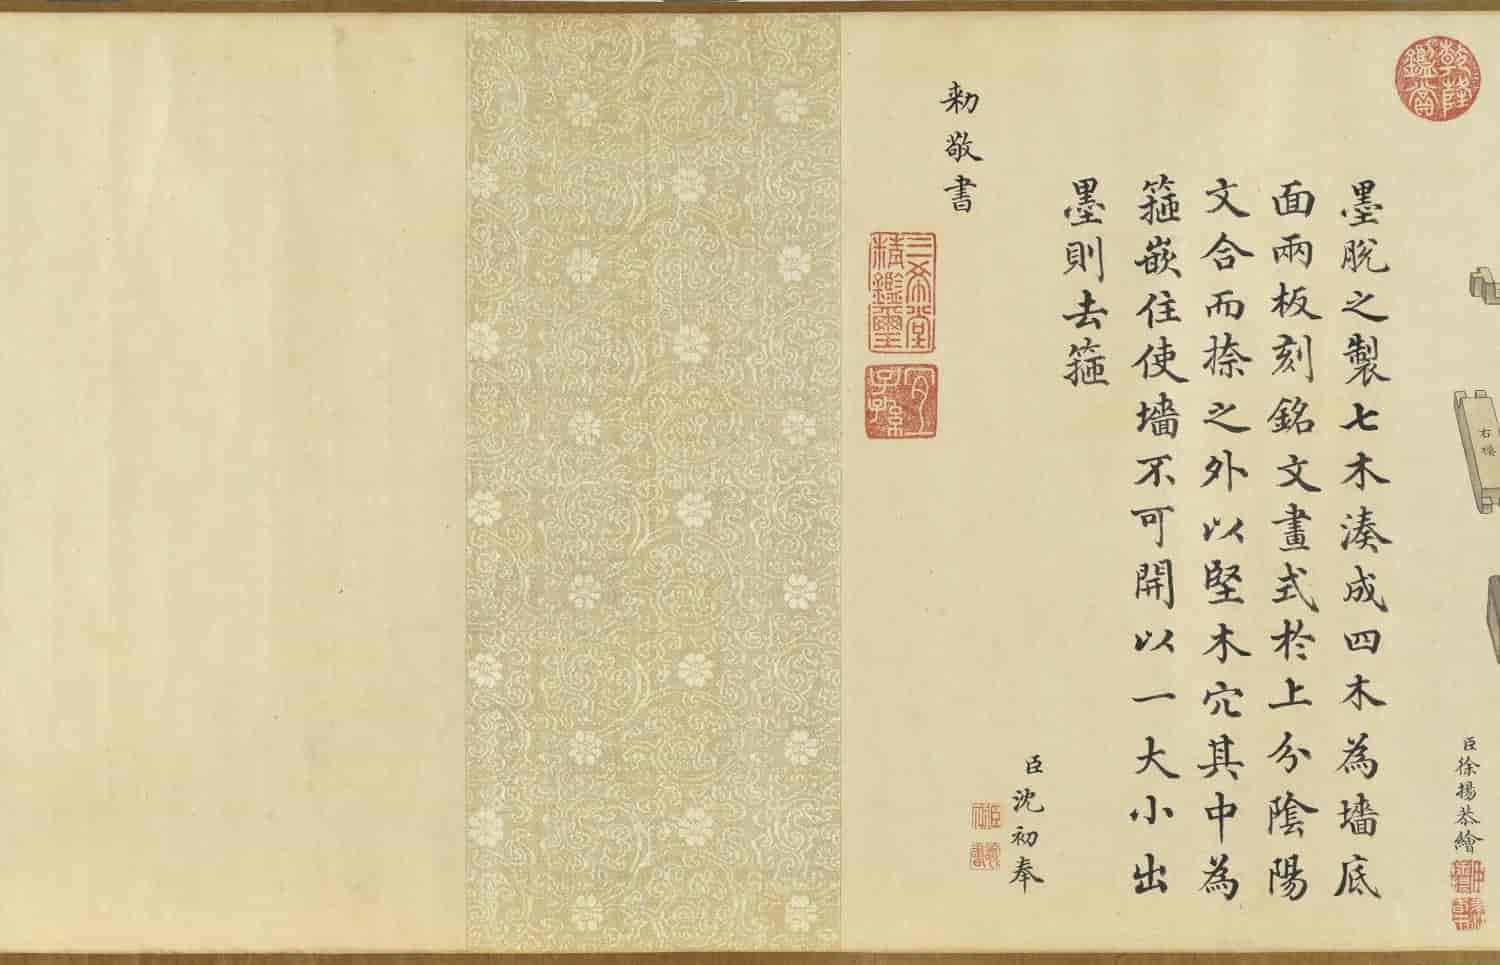 右橋
臣徐揚恭繪
乾隆鑑賞
墨脫之製七木湊成四木為墻底
面兩板刻銘文畫式於上分陰陽
文合而捺之外以堅木穴其中為
箍嵌住使墻不可開以一大小出
墨則去箍
臣沈初奉
勅敬書
三希堂精鑑璽
宜子孫